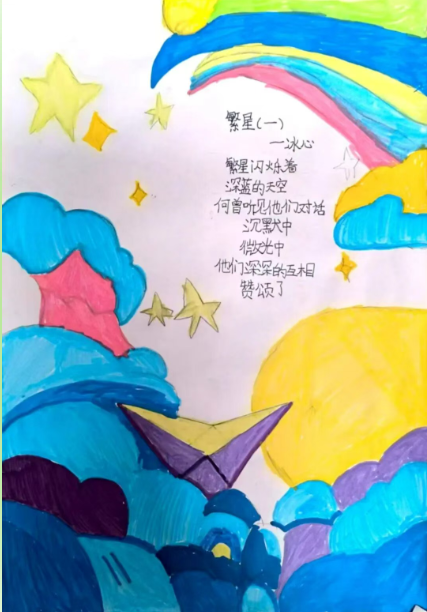 繁星(一)
—冰心
繁星闪烁着
深蓝的天空
何曾听见他们对话
沉默中
微光中
他们深深的互相
赞颂了